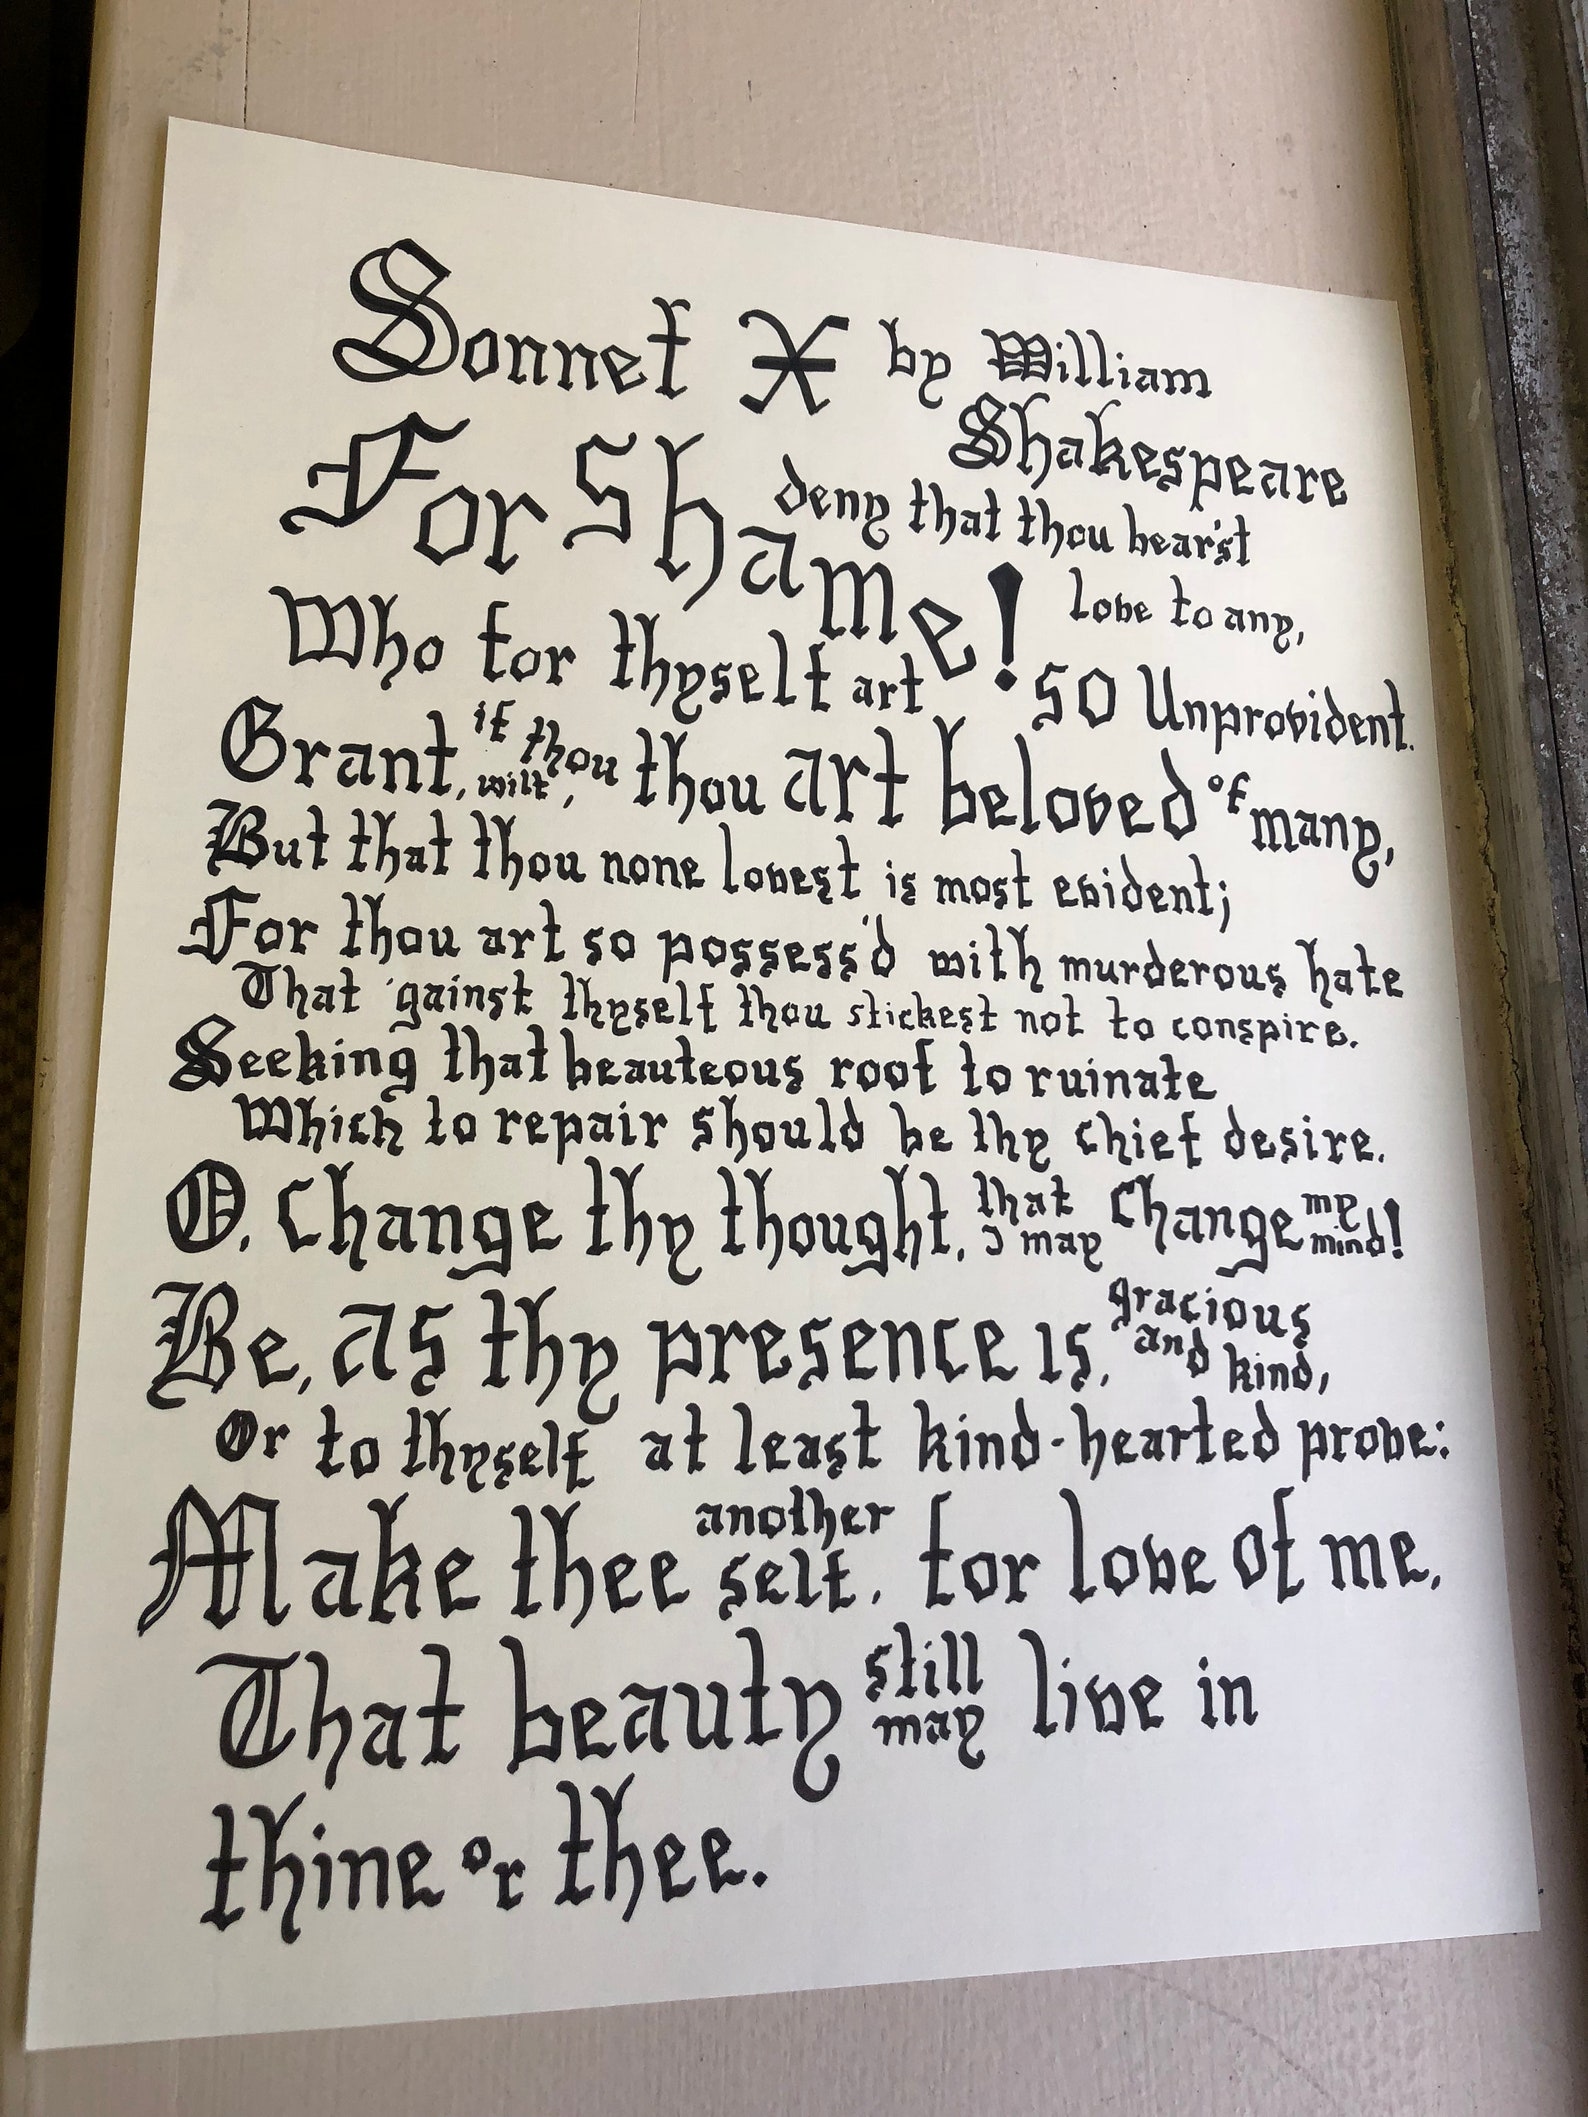 Sonnet X by William
Shakespeare
For Shame! deny that thou bear'st
love to any,
Who for thyself art so Unprovident.
Grant, if thou wilt, thou art beloved of many,
But that thou none lovest is most evident;
For thou art so possess'd with murderous hate
That 'gainst thyself thou stickest not to conspire.
Seeking that beauteous roof to ruinate
Which to repair should be thy chief desire.
O, Change thy thought, that I may Change my mind!
Be, as thy presence is, gracious and kind,
Or to thyself at least kind-hearted prove:
Make thee another self, for love of me,
That beauty still may live in
thine or thee.